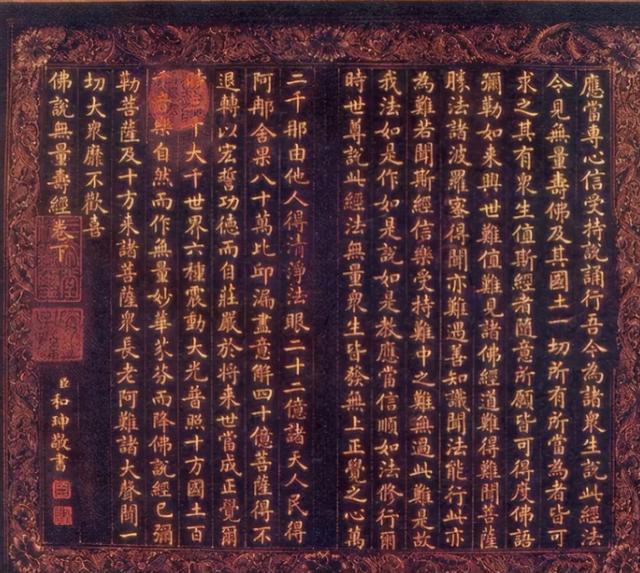 應當專心信受持說誦行吾今為諸衆生說此經法
今見無量壽佛及其國土一切所有所當為者皆可
求之其有衆生值斯經者隨意所願皆可得度佛語
彌勒如来興世難值難見諸佛經道難得難聞菩薩
勝法諸波羅蜜得聞亦難遇善知識聞法能行此亦
為難若聞斯經信樂受持難中之難無過此難是故
我法如是作如是說如是教應當信順如法修行爾
時世尊說此經法無量衆生皆發無上正覺之心萬
二千那由他人得清淨法眼二十二億諸天人民得
阿那舍果八十萬比邱漏盡意解四十億菩薩得不
退轉以宏誓功德而自莊嚴於将来世當成正覺爾
大千世界六種震動大光普照十方國土百
樂自然而作無量妙華芬而降佛說經已彌
勒菩薩及十方来諸菩薩衆長老阿難諸大聲聞一
切大衆靡不歡喜
佛說無量壽經卷下
臣和珅敬書